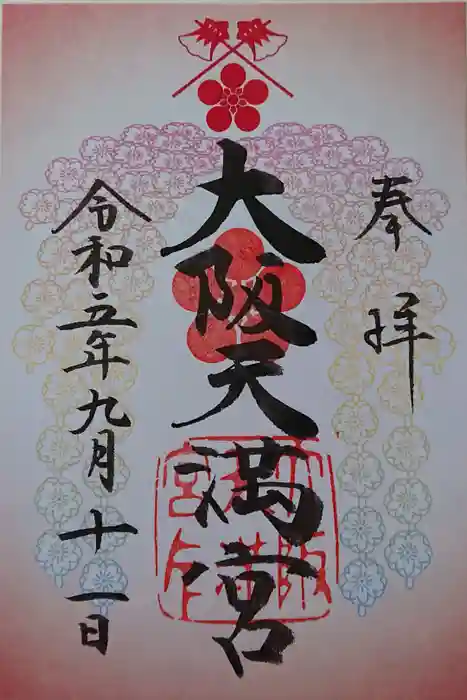 奉拝
大阪天満宮
令和五年九月十一日